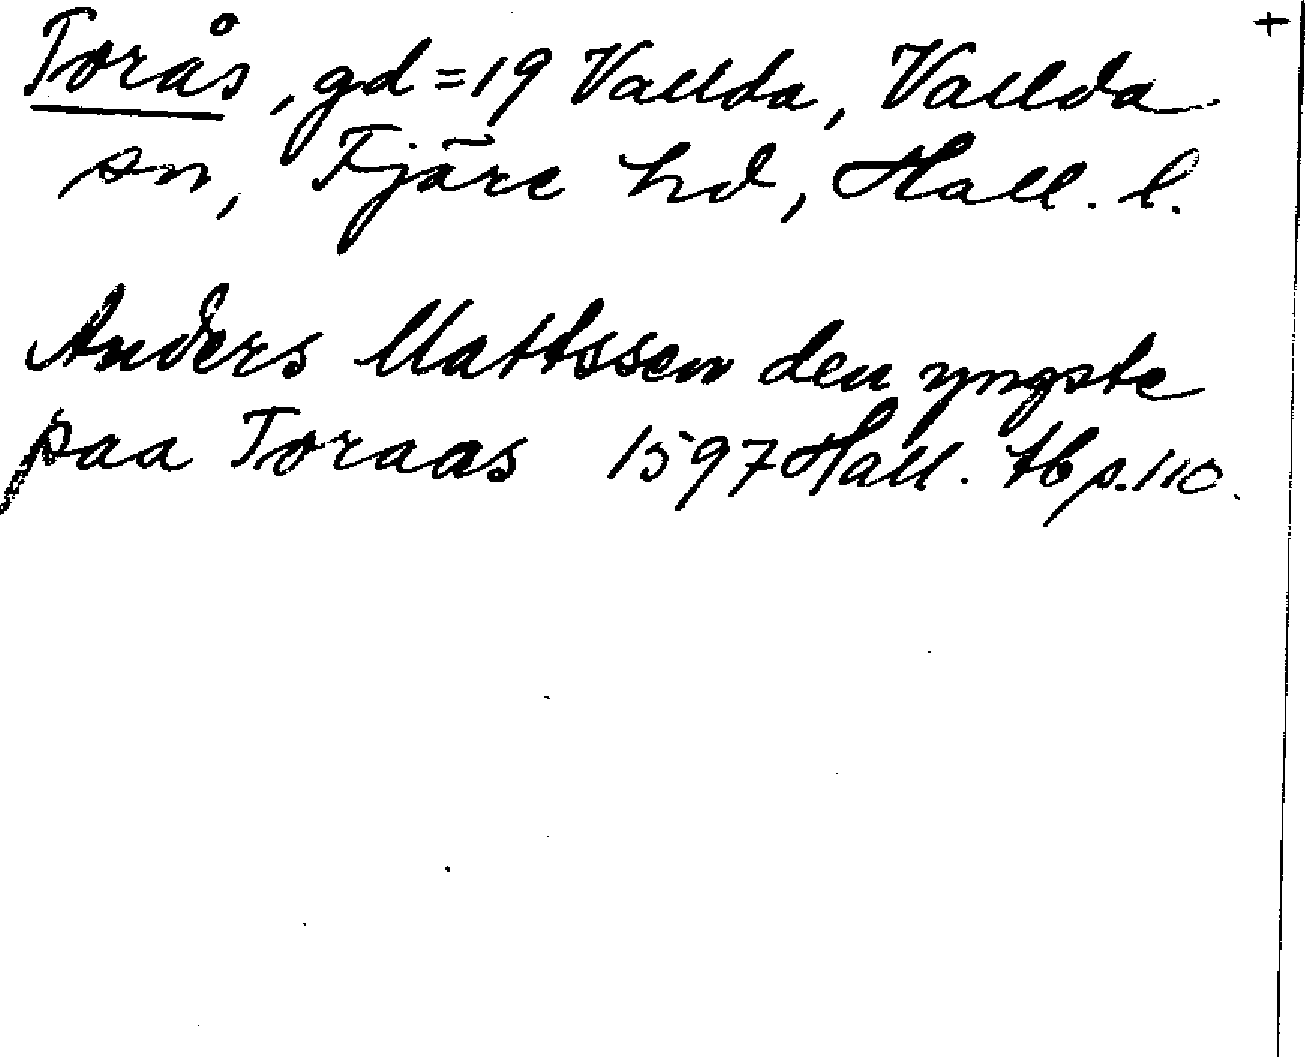 Torås, gd = 19 Vallda, Vallda +
sn, Fjäre hd, Hall. l.
Anders Mattssen den yngste
paa Toraas 1597 Hall. tb p. 110.